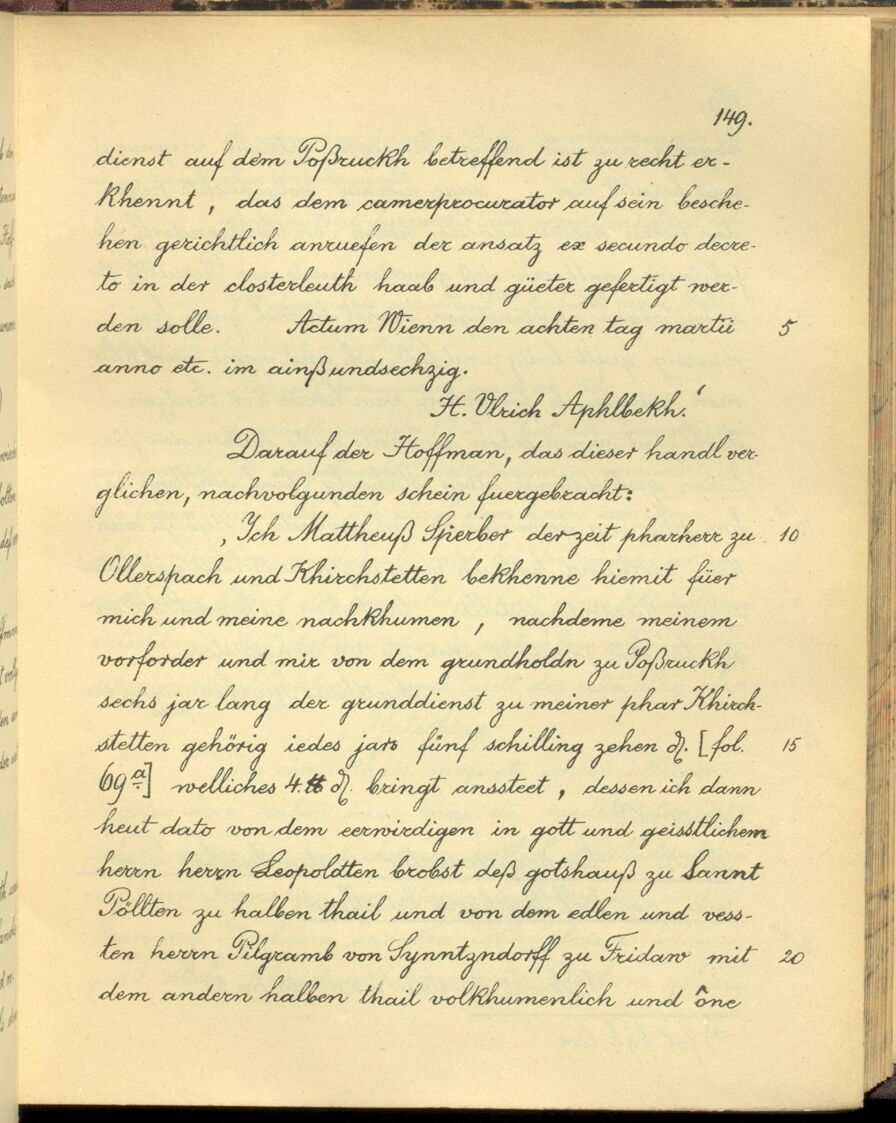 149.
dienst auf dem Poßruckh betreffend ist zu recht er-
khennt, das dem camerprocurator auf sein besche-
hen gerichtlich anruefen der ansatz ex secundo decre-
to in der closterleuth haab und güeter gefertigt wer-
den solle. Actum Wienn den achten tag martii 5
anno etc. im ainßundsechzig.
H. Ulrich Aphlbekh.‘
Darauf der Hoffman, das dieser handl ver-
glichen, nachvolgunden schein fuergebracht:
‚Ich Mattheuß Sperber derzeit pharherr zu 10
Ollerspach und Khirchstetten bekhenne hiemit füer
mich und meine nachkhumen, nachdeme meinem
vorforder und mir von dem grundholdn zu Poßruckh
sechs jar lang der grunddienst zu meiner phar Khirch-
stetten gehörig iedes jars fünf schilling zehen ₰. [fol. 15
69ª] welliches 4 ℔ ₰. bringt anssteet, dessen ich dann
heut dato von dem eerwirdigen in gott und geisstlichem
herrn herrn Leopoldten brobst deß gotshauß zu Sannt
Pöllten zu halben thail und von dem edlen und vess-
ten herrn Pilgramb von Synntzndorff zu Fridaw mit 20
dem andern halben thail volkhumenlich und ône